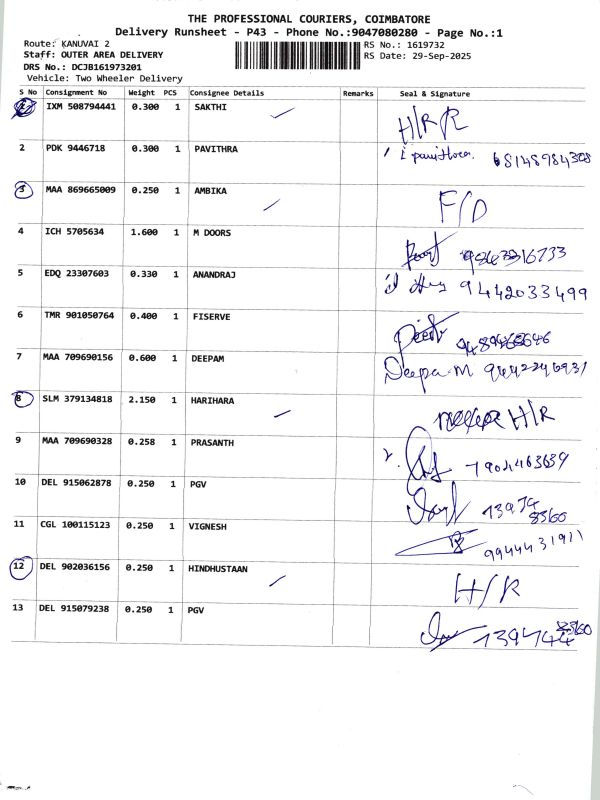 THE PROFESSIONAL COURIERS, COIMBATORE
Delivery Runsheet - P43 - Phone No.:9047080280 - Page No.:1
Route: KANUVAI 2 RS No.: 1619732
Staff: OUTER AREA DELIVERY RS Date: 29-Sep-2025
DRS No.: DCJB161973201
Vehicle: Two Wheeler Delivery
S No Consignment No Weight PCS Consignee Details Remarks Seal & Signature
1 IXM 508794441 0.300 1 SAKTHI H/R
2 PDK 9446718 0.300 1 PAVITHRA
3 MAA 869665009 0.250 1 AMBIKA F/D
4 ICH 5705634 1.600 1 M DOORS
5 EDQ 23307603 0.330 1 ANANDRAJ 9442033499
6 TMR 901050764 0.400 1 FISERVE
7 MAA 709690156 0.600 1 DEEPAM Deepa.M 9442246931
8 SLM 379134818 2.150 1 HARIHARA H/R
9 MAA 709690328 0.258 1 PRASANTH
10 DEL 915062878 0.250 1 PGV
11 CGL 100115123 0.250 1 VIGNESH 9944431911
12 DEL 902036156 0.250 1 HINDHUSTAAN H/R
13 DEL 915079238 0.250 1 PGV